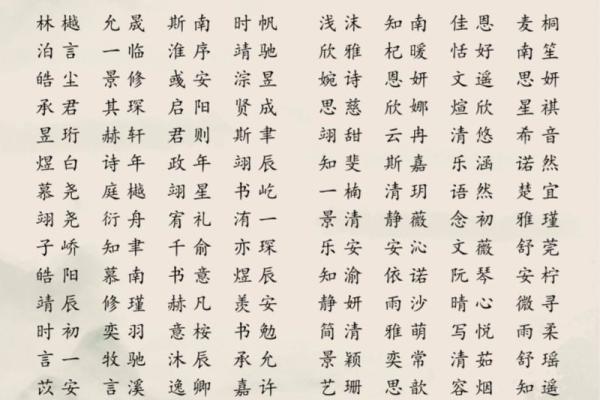 林樾 允晟 斯南 时帆 浅沫 知南 佳恩 麦桐
泊言 一临 淮序 靖驰 欣雅 杞暖 恬好 南笙
皓尘 景修 彧安 淙昱 婉诗 恩妍 文遥 思妍
承君 其琛 启阳 贤成 思慈 欣娜 煊欣 星祺
昱珩 赫轩 君则 斯聿 翊甜 云冉 清悠 希音
煜白 诗年 政年 翊辰 知斐 斯嘉 乐涵 诺然
慕尧 庭樾 翊星 书屹 一楠 清玥 语然 楚宜
翊尧 衍舟 宥礼 洧一 景清 静薇 念初 雅瑾
子峤 知聿 千俞 亦琛 乐安 安沁 文薇 舒莞
皓阳 慕南 书意 煜辰 知渝 依诺 阮琴 安柠
靖辰 修瑾 赫凡 羡安 静妍 雨沙 晴心 微寻
时初 奕羽 意桉 书勉 简清 雅萌 写悦 雨柔
言一 牧驰 沐辰 承允 景颖 奕常 清茹 舒瑶
苡安 言溪 逸卿 嘉许 艺珊 思歆 容烟 知遥